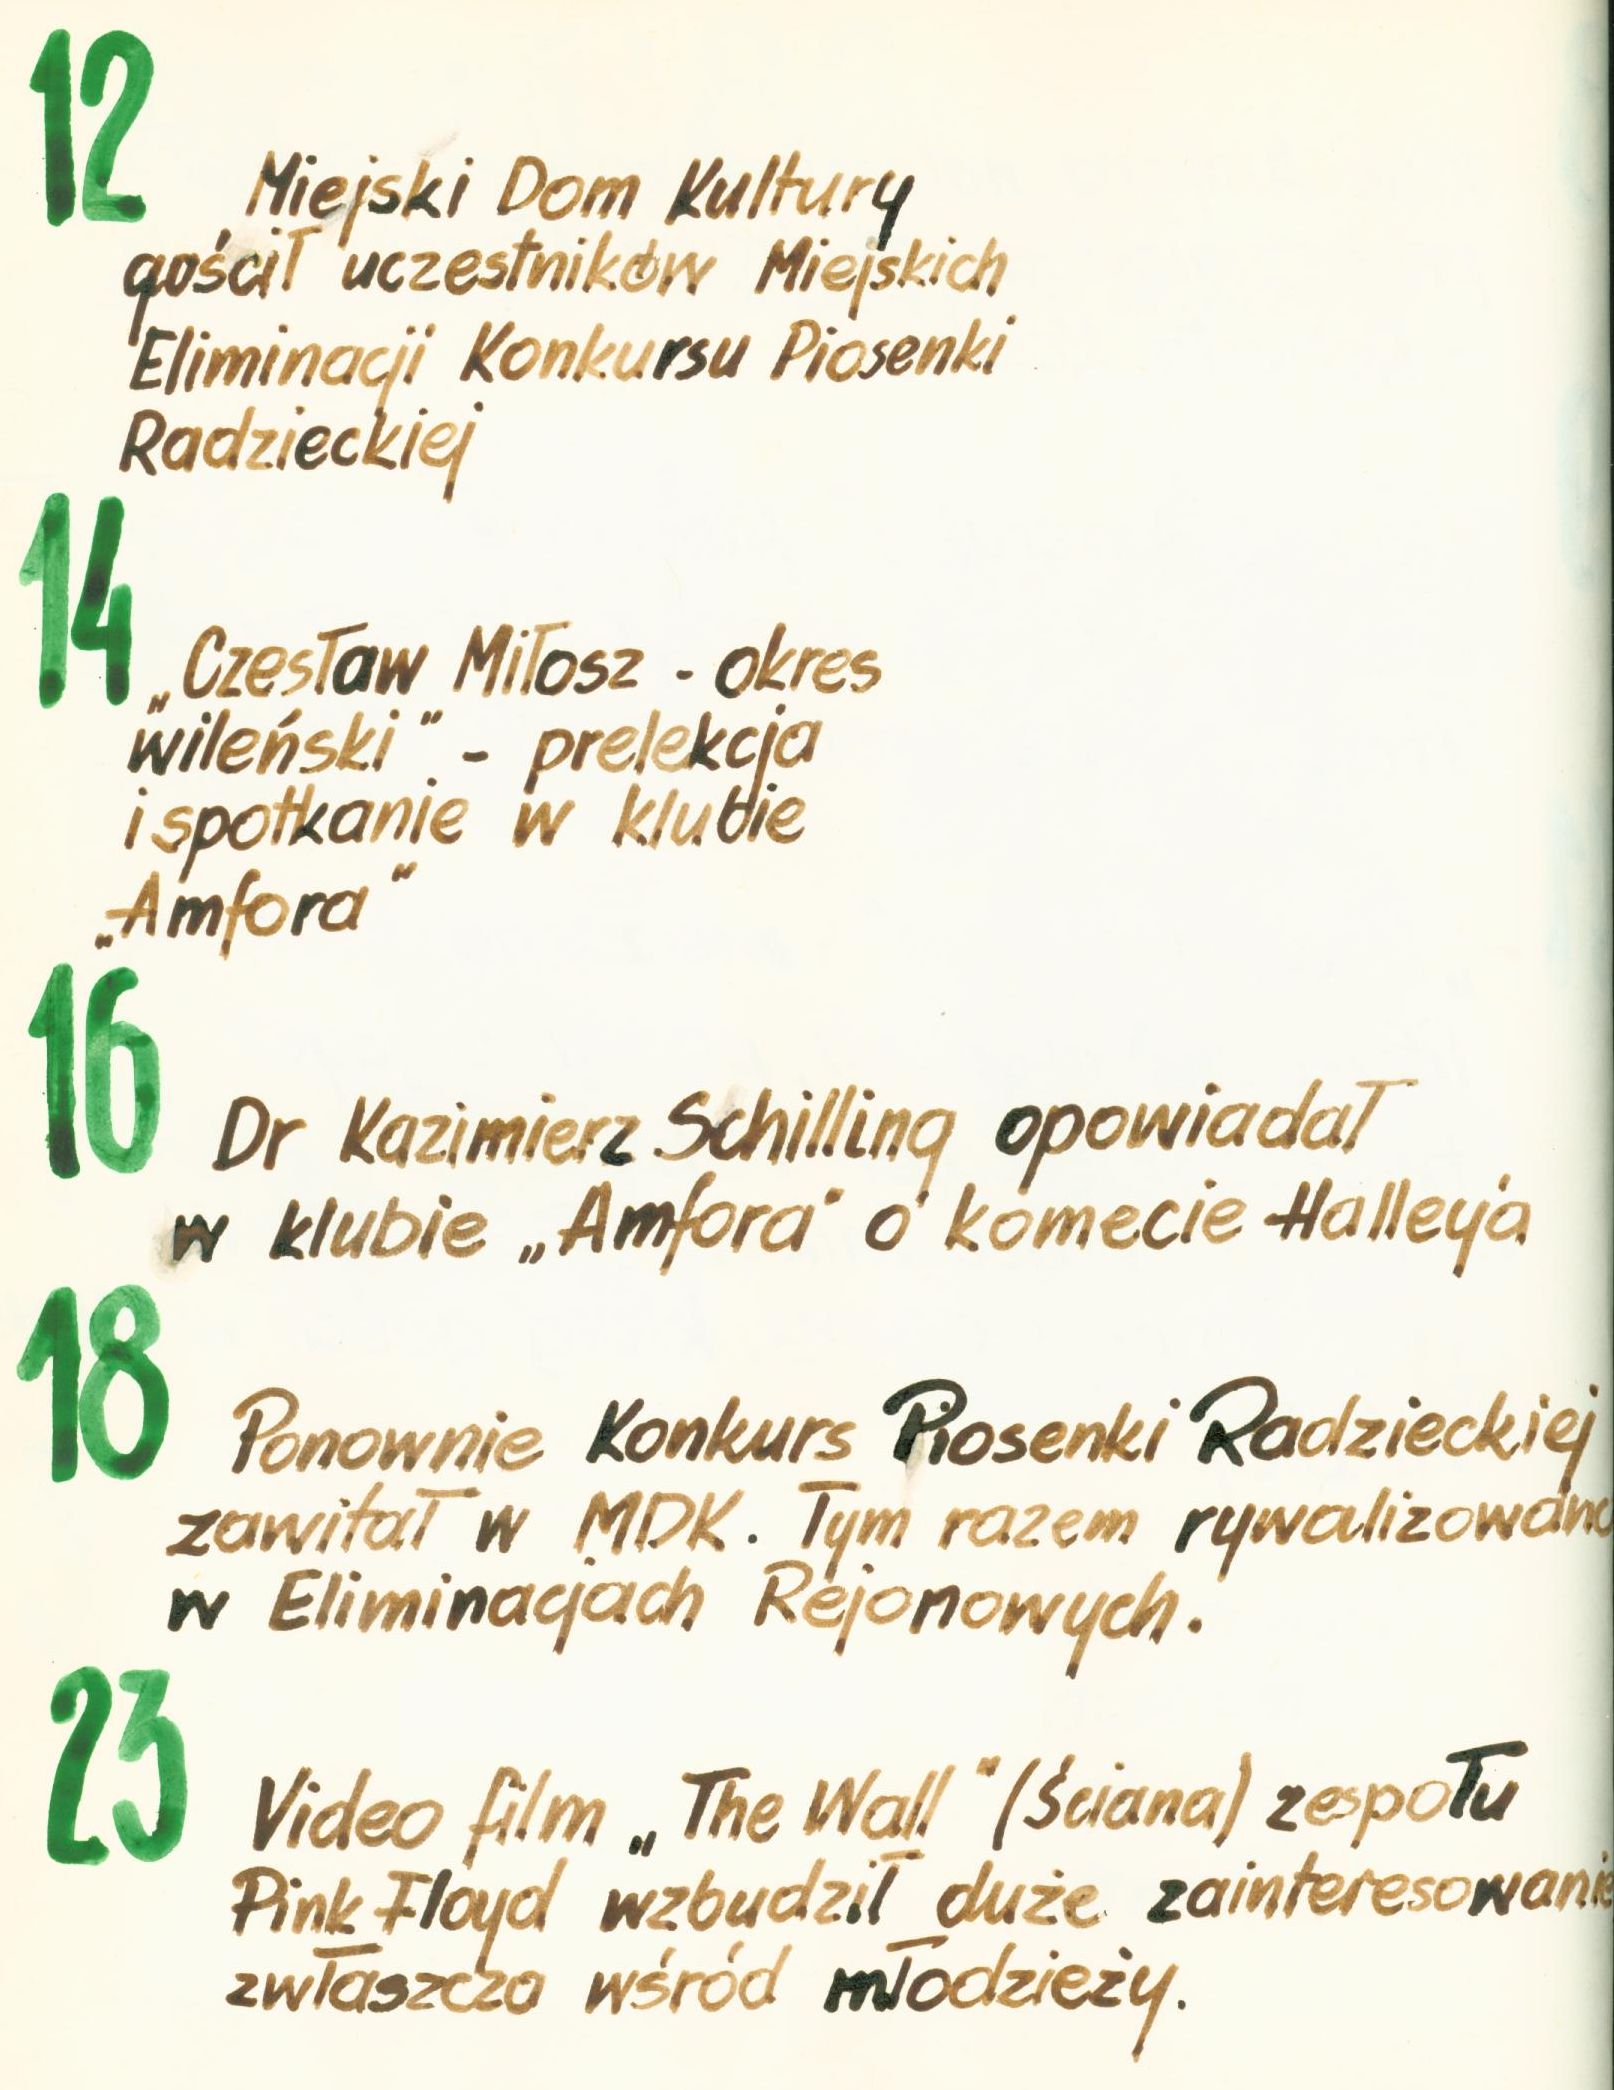 12
Miejski Dom Kultury
gościł uczestników Miejskich
Eliminacji Konkursu Piosenki
Radzieckiej
14
„Czesław Miłosz - okres
wileński" - prelekcja
i spotkanie w klubie
„Amfora"
16
Dr Kazimierz Schilling opowiadał
w klubie „Amfora" o komecie Halley'a
18
Ponownie Konkurs Piosenki Radzieckiej
zawitał w MDK. Tym razem rywalizowano
w Eliminacjach Rejonowych.
23
Video film „The Wall" (Ściana) zespołu
Pink Floyd wzbudził duże zainteresowanie
zwłaszcza wśród młodzieży.